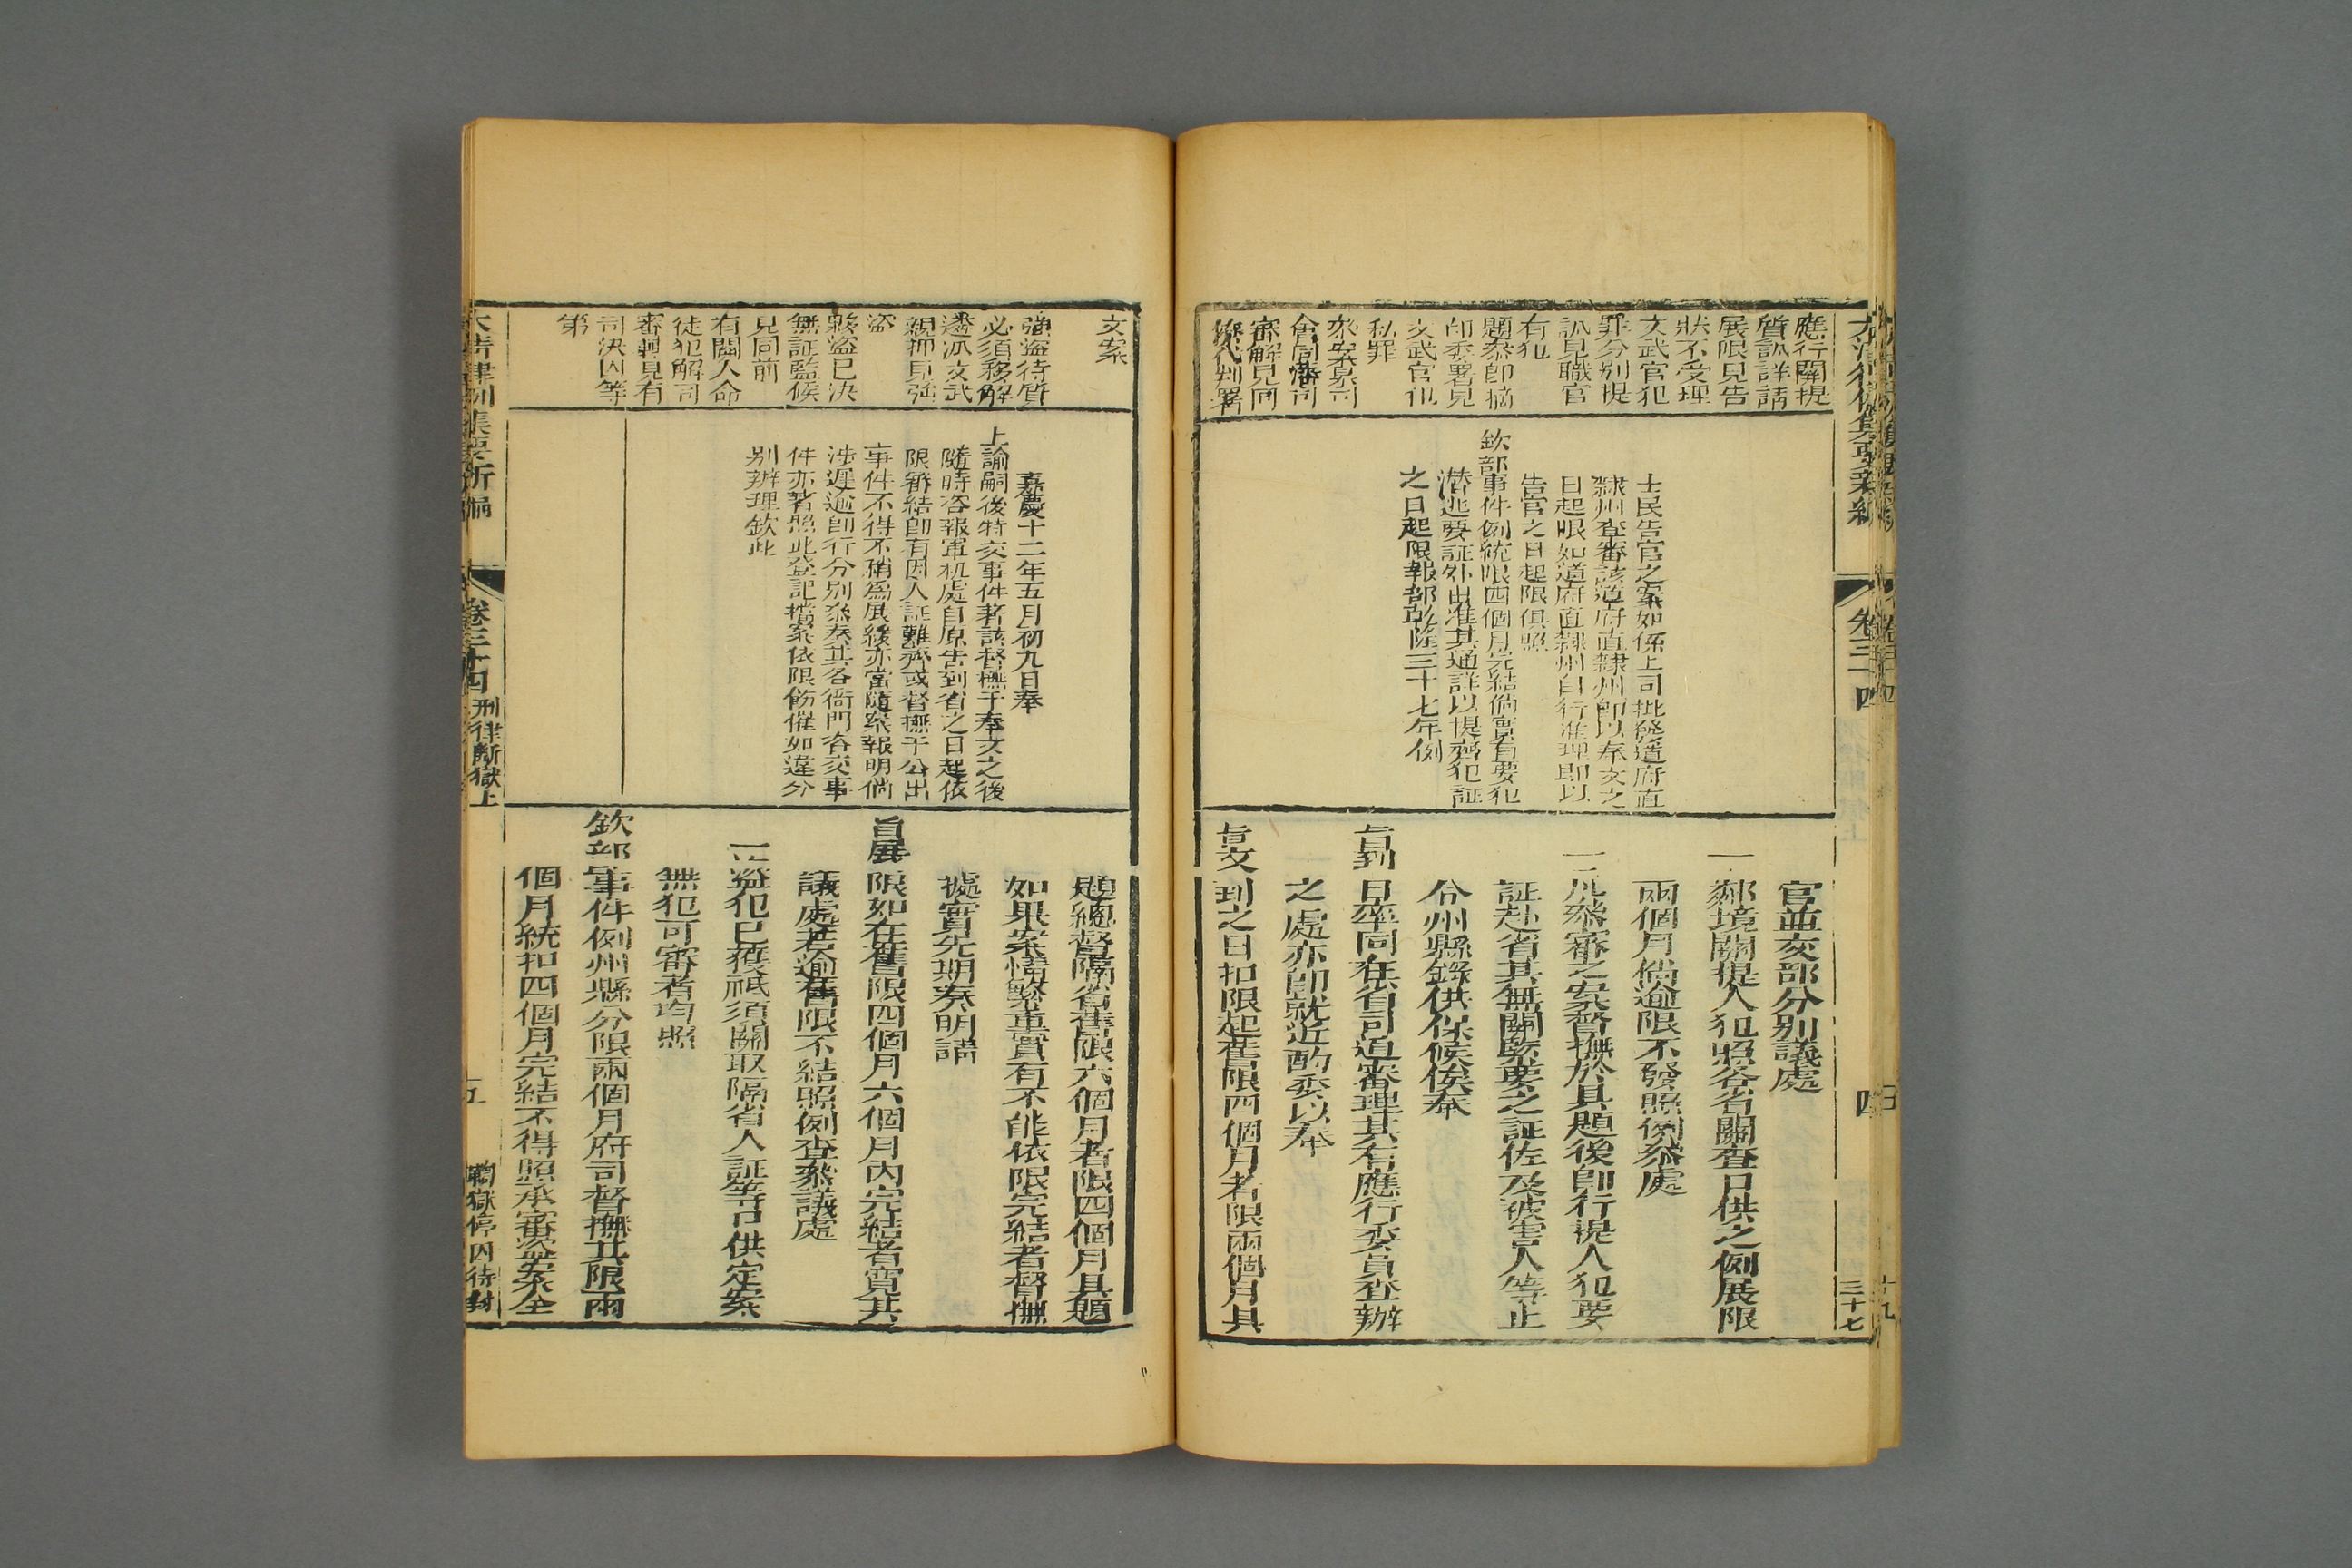 應行關提
質訊詳請
展限見告
狀不受理
文武官犯
罪分別提
訊見職官
有犯
題參即摘
印委署見
文武官犯
私罪
參案臬司
會同藩司
審解見同
僚代判署
士民告官之案如係上司批發道府直
隸州查審該道府直隸州即以奉文之
日起限如道府直隸州自行准理即以
告官之日起限俱照
欽部事件例統限四個月完結倘實有要犯
潛逃要証外出准其通詳以提齊犯証
之日起限報部乾隆三十七年例
官並交部分別議處
一鄰境關提人犯照各省關查口供之例展限
兩個月倘逾限不發照例參處
一凡參審之案督撫於具題後即行提人犯要
証赴省其無關緊要之証佐及被害人等止
令州縣錄供保候俟奉
旨到日率同在省司道審理其有應行委員查辦
之處亦即就近酌委以奉
旨文到之日扣限起舊限四個月者限兩個月具
卷三十四
四
三十七
文案
強盜待質
必須移解
遴派文武
親押見強
盜
夥盜已決
無証監候
見同前
有關人命
徒犯解司
審轉見有
司決囚等
第
嘉慶十二年五月初九日奉
上諭嗣後特交事件著該督撫于奉文之後
隨時咨報軍机處自原告到省之日起依
限審結即有因人証難齊或督撫于公出
事件不得不稍爲展緩亦當隨案報明倘
涉遲逾即行分別參奏其各衙門咨交事
件亦著照此登記檔案依限飭催如違分
別辦理欽此
題總督隔省舊限六個月者限四個月具題
如果案情繁重實有不能依限完結者督撫
據實先期奏明請
旨展限如在舊限四個月六個月內完結者寬其
議處若逾舊限不結照例查參議處
一盜犯已獲祗須關取隔省人証等口供定案
無犯可審者均照
欽部事件例州縣分限兩個月府司督撫共限兩
個月統扣四個月完結不得照承審盜案全
大清律例集要新編
卷三十四
刑律斷獄上
五
鞫獄停囚待對